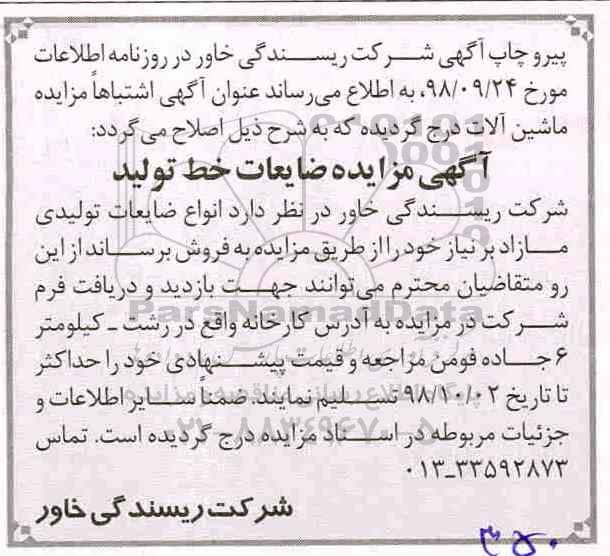 پیرو چاپ آگهی شرکت ریسندگی خاور در روزنامه اطلاعات
مورخ ۹۸/۰۹/۲۴، به اطلاع می‌رساند عنوان آگهی اشتباهاً مزایده
ماشین آلات درج گردیده که به شرح ذیل اصلاح می‌گردد:
آگهی مزایده ضایعات خط تولید
شرکت ریسندگی خاور در نظر دارد انواع ضایعات تولیدی
مازاد بر نیاز خود را از طریق مزایده به فروش برساند از این
رو متقاضیان محترم می‌توانند جهت بازدید و دریافت فرم
شرکت در مزایده به آدرس کارخانه واقع در رشت ـ کیلومتر
۶ جاده فومن مراجعه و قیمت پیشنهادی خود را حداکثر
تا تاریخ ۹۸/۱۰/۰۲ تسلیم نمایند. ضمناً سایر اطلاعات و
جزئیات مربوطه در اسناد مزایده درج گردیده است. تماس
۰۱۳-۳۳۵۹۲۸۷۳
شرکت ریسندگی خاور
ParsNamadData
۳۵۰